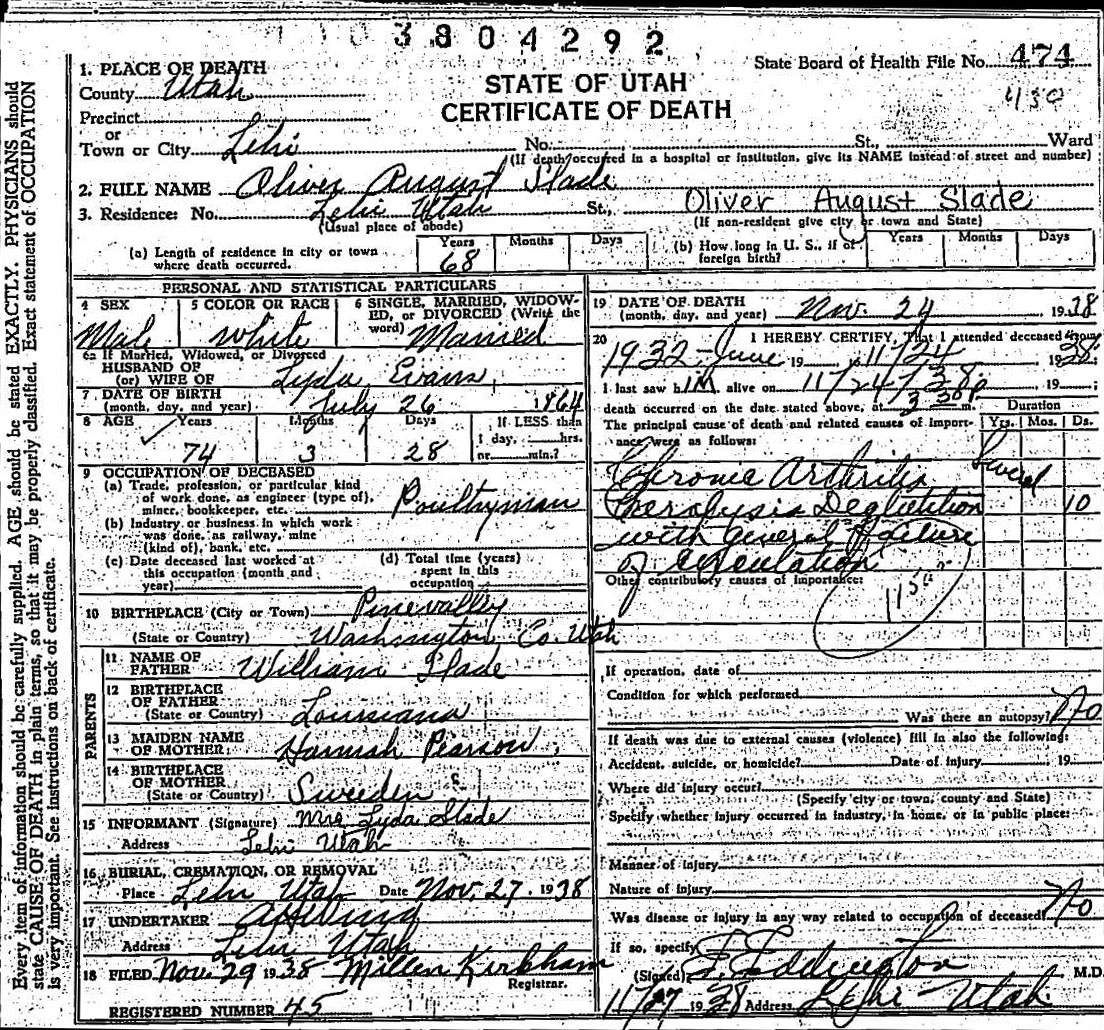 3804292
State Board of Health File No. 474
430
STATE OF UTAH
CERTIFICATE OF DEATH
1. PLACE OF DEATH
County Utah
Precinct
or
Town or City Lehi No. St., Ward
(If death occurred in a hospital or institution, give its NAME instead of street and number)
2. FULL NAME Oliver August Slade
3. Residence: No. Lehi Utah St., Oliver August Slade
(Usual place of abode) (If non-resident give city or town and State)
(a) Length of residence in city or town where death occurred. Years 68 Months Days
(b) How long in U. S., if of foreign birth? Years Months Days
PERSONAL AND STATISTICAL PARTICULARS
4 SEX Male
5 COLOR OR RACE White
6 SINGLE, MARRIED, WIDOWED, or DIVORCED (Write the word) Married
6a If Married, Widowed, or Divorced
HUSBAND OF
(or) WIFE OF Lyda Evans
7 DATE OF BIRTH
(month, day, and year) July 26 1864
8 AGE Years 74 Months 3 Days 28 If LESS than 1 day, hrs. or min.?
9 OCCUPATION OF DECEASED
(a) Trade, profession, or particular kind
of work done, as engineer (type of),
miner, bookkeeper, etc. Poultryman
(b) Industry or business in which work
was done, as railway, mine
(kind of), bank, etc.
(c) Date deceased last worked at
this occupation (month and
year)
(d) Total time (years)
spent in this
occupation
10 BIRTHPLACE (City or Town) Pinevalley
(State or Country) Washington Co. Utah
PARENTS
11 NAME OF
FATHER William Slade
12 BIRTHPLACE
OF FATHER
(State or Country) Louisiana
13 MAIDEN NAME
OF MOTHER Hannah Pearson
14 BIRTHPLACE
OF MOTHER
(State or Country) Sweden
15 INFORMANT (Signature) Mrs Lyda Slade
Address Lehi Utah
16 BURIAL, CREMATION, OR REMOVAL
Place Lehi Utah Date Nov. 27 1938
17 UNDERTAKER
Address Lehi Utah
18 FILED Nov. 29 1938 Millen Kirkham
Registrar.
REGISTERED NUMBER 45
19 DATE OF DEATH
(month, day, and year) Nov. 24 1938
20 I HEREBY CERTIFY, That I attended deceased from
1932 June 19 11/24 1938
I last saw him alive on 11/24/38 19 ;
death occurred on the date stated above, at 3 p m. Duration
The principal cause of death and related causes of importance were as follows: Yrs. Mos. Ds.
Chronic Arthritis Several
Paralysis Deglutition 10
with General Failure
of Circulation
Other contributory causes of importance:
If operation, date of
Condition for which performed
Was there an autopsy? No
If death was due to external causes (violence) fill in also the following:
Accident, suicide, or homicide? Date of injury 19
Where did injury occur?
(Specify city or town, county and State)
Specify whether injury occurred in industry, in home, or in public place:
Manner of injury
Nature of injury
Was disease or injury in any way related to occupation of deceased? No
If so, specify
(Signed) E. Eddington M.D.
11/27 1938 Address Lehi Utah
Every item of information should be carefully supplied. AGE should be stated EXACTLY. PHYSICIANS should
state CAUSE OF DEATH in plain terms, so that it may be properly classified. Exact statement of OCCUPATION
is very important. See instructions on back of certificate.